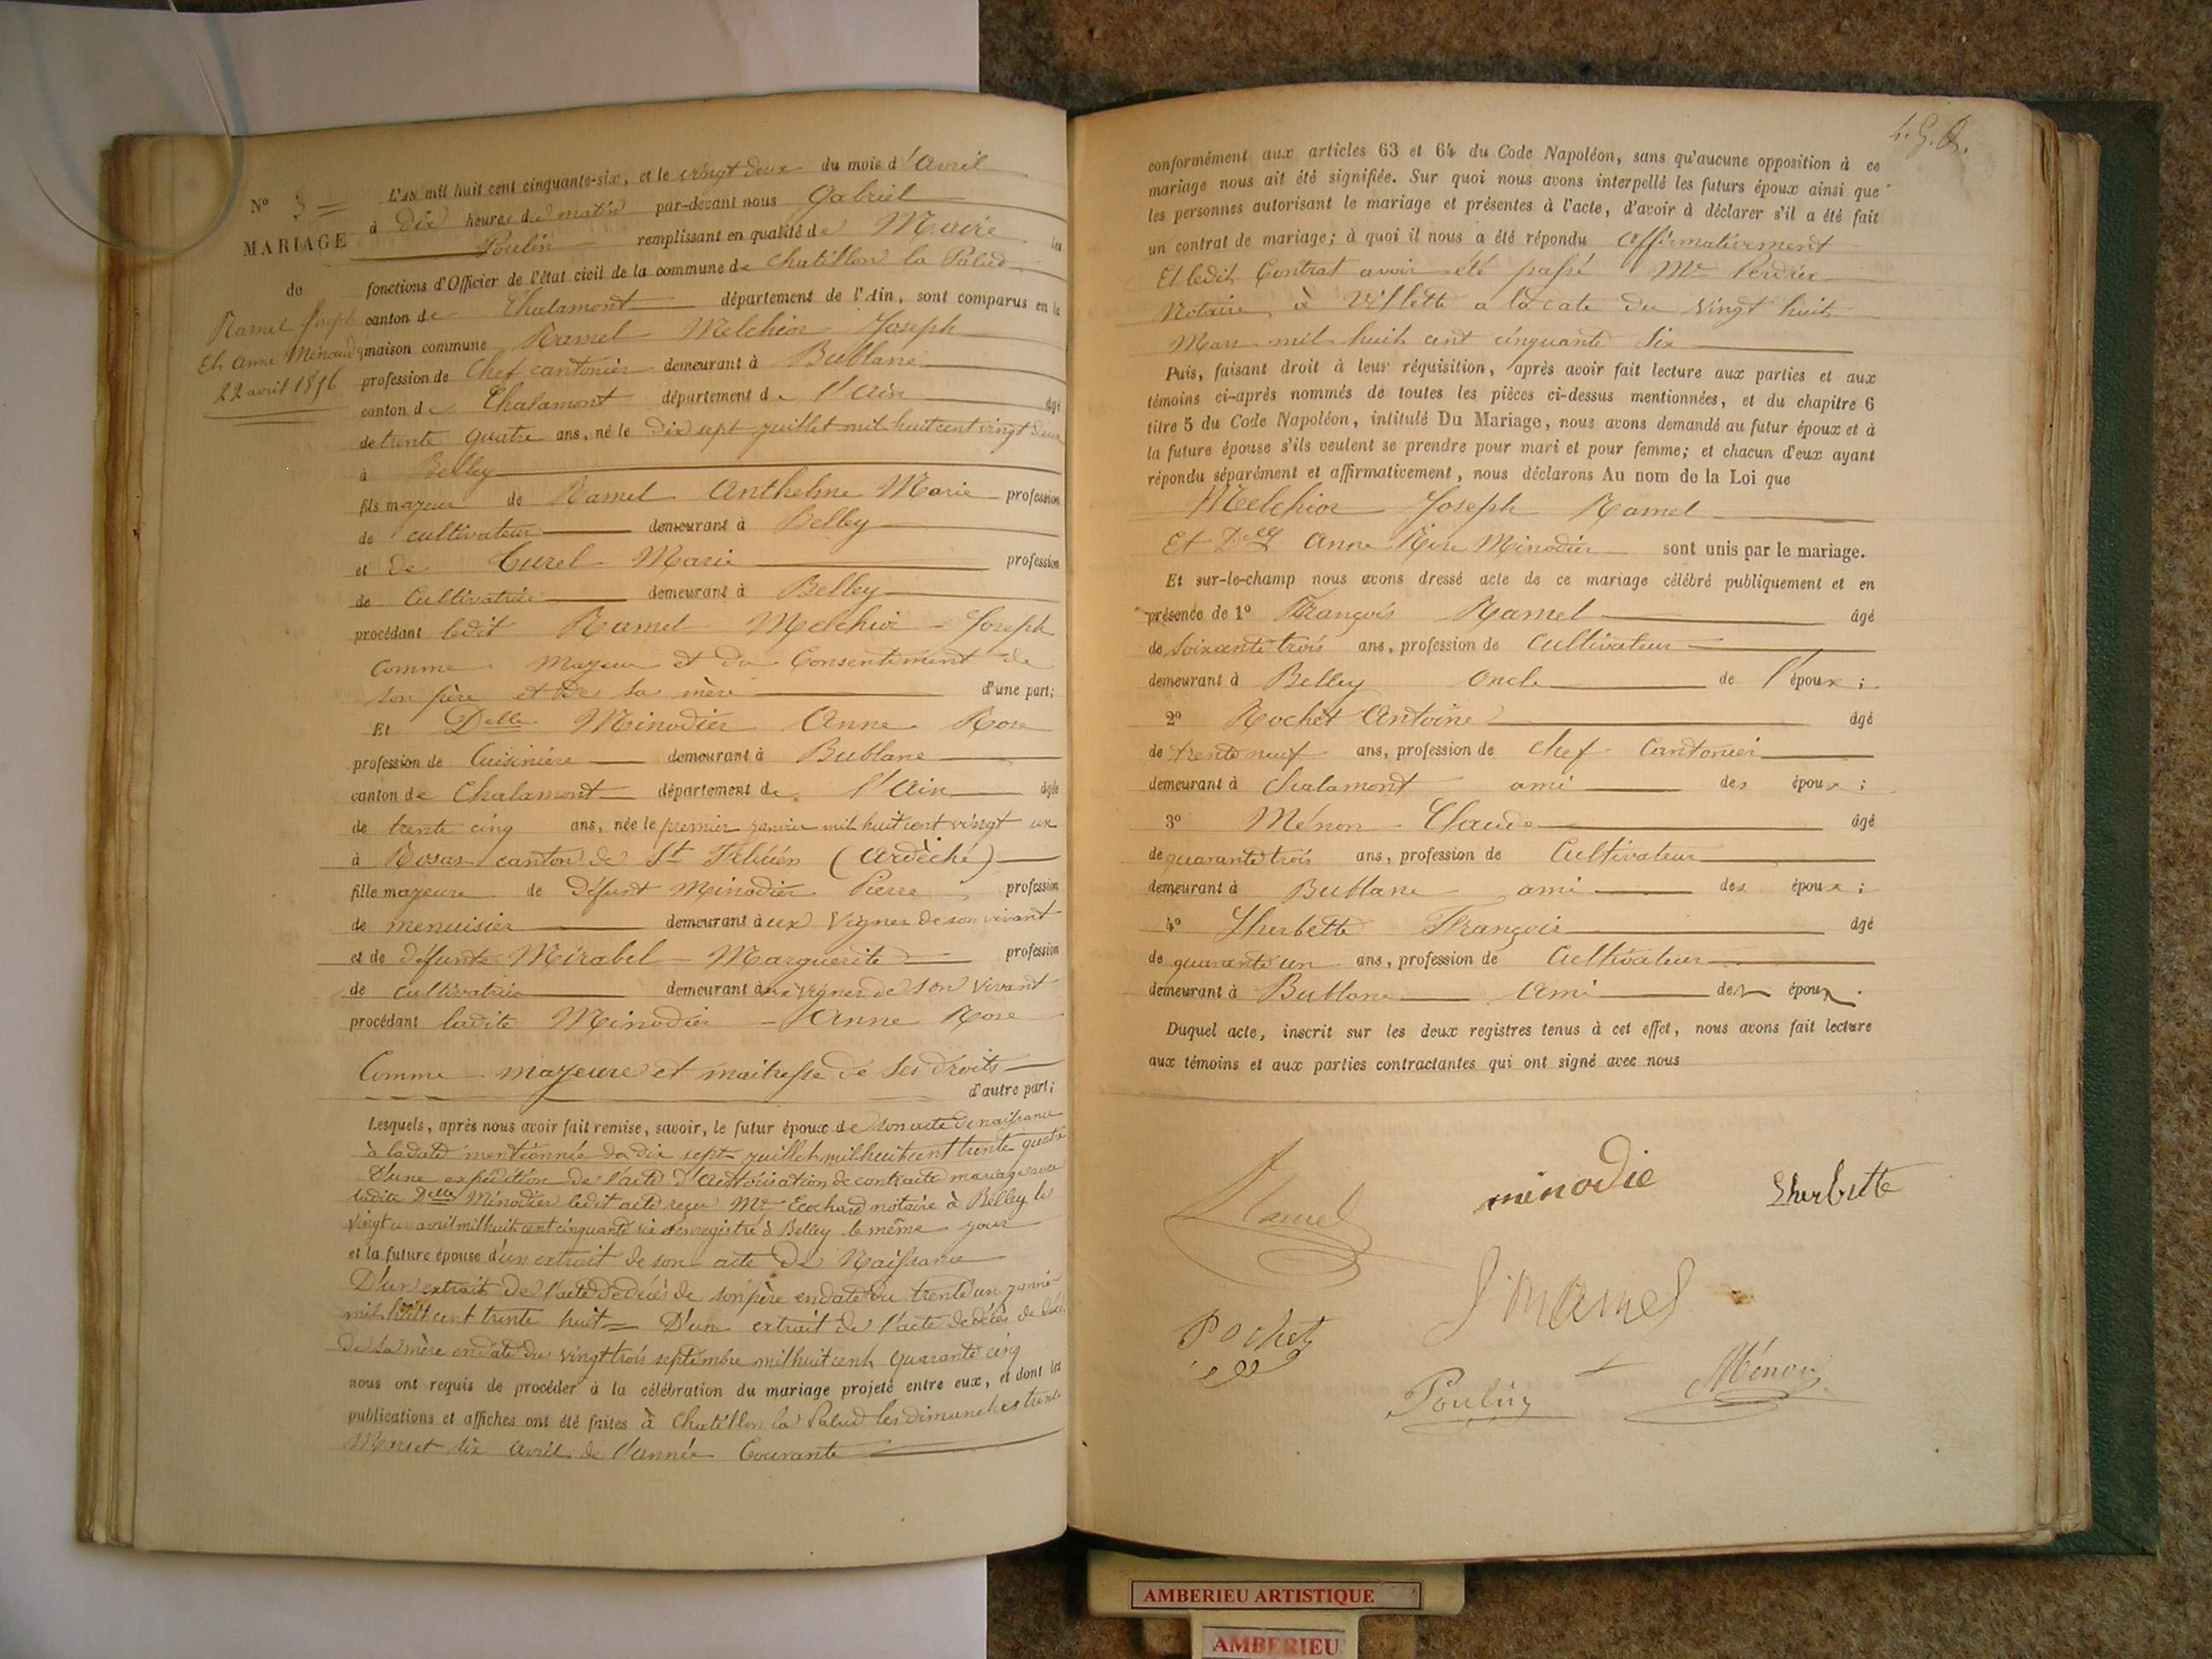 L'an mil huit cent cinquante-six, et le vingt deux du mois d'Avril
N° 5
à Dix heures du matin par-devant nous Gabriel
MARIAGE
Poulin remplissant en qualité de Maire les
de
fonctions d'Officier de l'état civil de la commune de Chatillon la Palud
Ramel Joseph
canton de Chalamont département de l'Ain, sont comparus en la
Et Anne Minaudier
maison commune Ramel Melchior Joseph
22 avril 1856
profession de Chef cantonier demeurant à Bublane
canton de Chalamont département de l'Ain âgé
de trente quatre ans, né le Dix sept juillet mil huit cent vingt deux
à Belley
fils majeur de Ramel Anthelme Marie profession
de cultivateur demeurant à Belley
et de Curel Marie profession
de Cultivatrice demeurant à Belley
procédant ledit Ramel Melchior Joseph
Comme Majeur et du Consentement de
son père et de sa mère d'une part;
Et Delle Minodier Anne Rose
profession de Cuisinière demeurant à Bublane
canton de Chalamont département de l'Ain âgée
de trente cinq ans, née le premier janvier mil huit cent vingt un
à Bosas canton de St Félicien (Ardèche)
fille majeure de Défunt Minodier Pierre profession
de menuisier demeurant aux Vignes de son vivant
et de défunte Mirabel Marguerite profession
de cultivatrice demeurant aux Vignes de son vivant
procédant ladite Minodier Anne Rose
Comme majeure et maitresse de ses droits
d'autre part;
Lesquels, après nous avoir fait remise, savoir, le futur époux de son acte de naissance
à la date mentionnée du dix sept juillet mil huit cent trente quatre
D'une expédition de l'acte d'autorisation de contracte mariage avec
ladite Delle Minodier ledit acte reçu Me Ecochard notaire à Belley le
Vingt un avril mil huit cent cinquante six et enregistré à Belley le même jour
et la future épouse d'un extrait de son acte de Naissance
D'un extrait de l'acte de décès de son père en date du trente un janvier
mil huit cent trente huit = D'un extrait de l'acte de décès de
de sa mère en date du vingt trois septembre mil huit cent quarante cinq
nous ont requis de procéder à la célébration du mariage projeté entre eux, et dont les
publications et affiches ont été faites à Chatillon la Palud les dimanches trente
Mars et six Avril de l'année Courante
conformément aux articles 63 et 64 du Code Napoléon, sans qu'aucune opposition à ce
mariage nous ait été signifiée. Sur quoi nous avons interpellé les futurs époux ainsi que
les personnes autorisant le mariage et présentes à l'acte, d'avoir à déclarer s'il a été fait
un contrat de mariage; à quoi il nous a été répondu affirmativement
Et ledit Contrat avoir été passé Me Perdrix
Notaire à Villette a la date du Vingt huit
Mars mil huit cent cinquante six
Puis, faisant droit à leur réquisition, après avoir fait lecture aux parties et aux
témoins ci-après nommés de toutes les pièces ci-dessus mentionnées, et du chapitre 6
titre 5 du Code Napoléon, intitulé Du Mariage, nous avons demandé au futur époux et à
la future épouse s'ils veulent se prendre pour mari et pour femme; et chacun d'eux ayant
répondu séparément et affirmativement, nous déclarons Au nom de la Loi que
Melchior Joseph Ramel
Et Delle Anne Rose Minodier sont unis par le mariage.
Et sur-le-champ nous avons dressé acte de ce mariage célébré publiquement et en
présence de 1° François Ramel âgé
de Soixante trois ans, profession de Cultivateur
demeurant à Belley Oncle de l'époux;
2° Rochet Antoine âgé
de trente neuf ans, profession de chef Cantonier
demeurant à Chalamont ami des époux;
3° Ménon Claude âgé
de quarante trois ans, profession de Cultivateur
demeurant à Bublane ami des époux;
4° Lherbette François âgé
de quarante un ans, profession de Cultivateur
demeurant à Bublane Ami des époux.
Duquel acte, inscrit sur les deux registres tenus à cet effet, nous avons fait lecture
aux témoins et aux parties contractantes qui ont signé avec nous
Ramel
minodie
Lherbette
Ramel
Rochet
Poulin
Ménon
AMBERIEU ARTISTIQUE
AMBERIEU